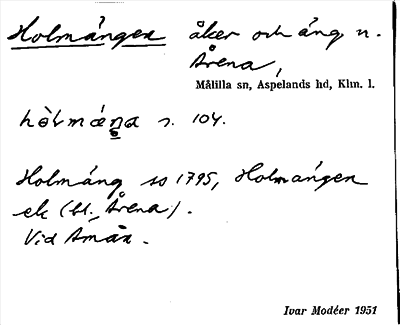 Holmängen åker och äng n.
Årena,
Målilla sn, Aspelands hd, Klm. l.
s. 104.
Holmäng so 1795, Holmängen
ek (bl. Årena).
Vid Åmän.
Ivar Modéer 1951